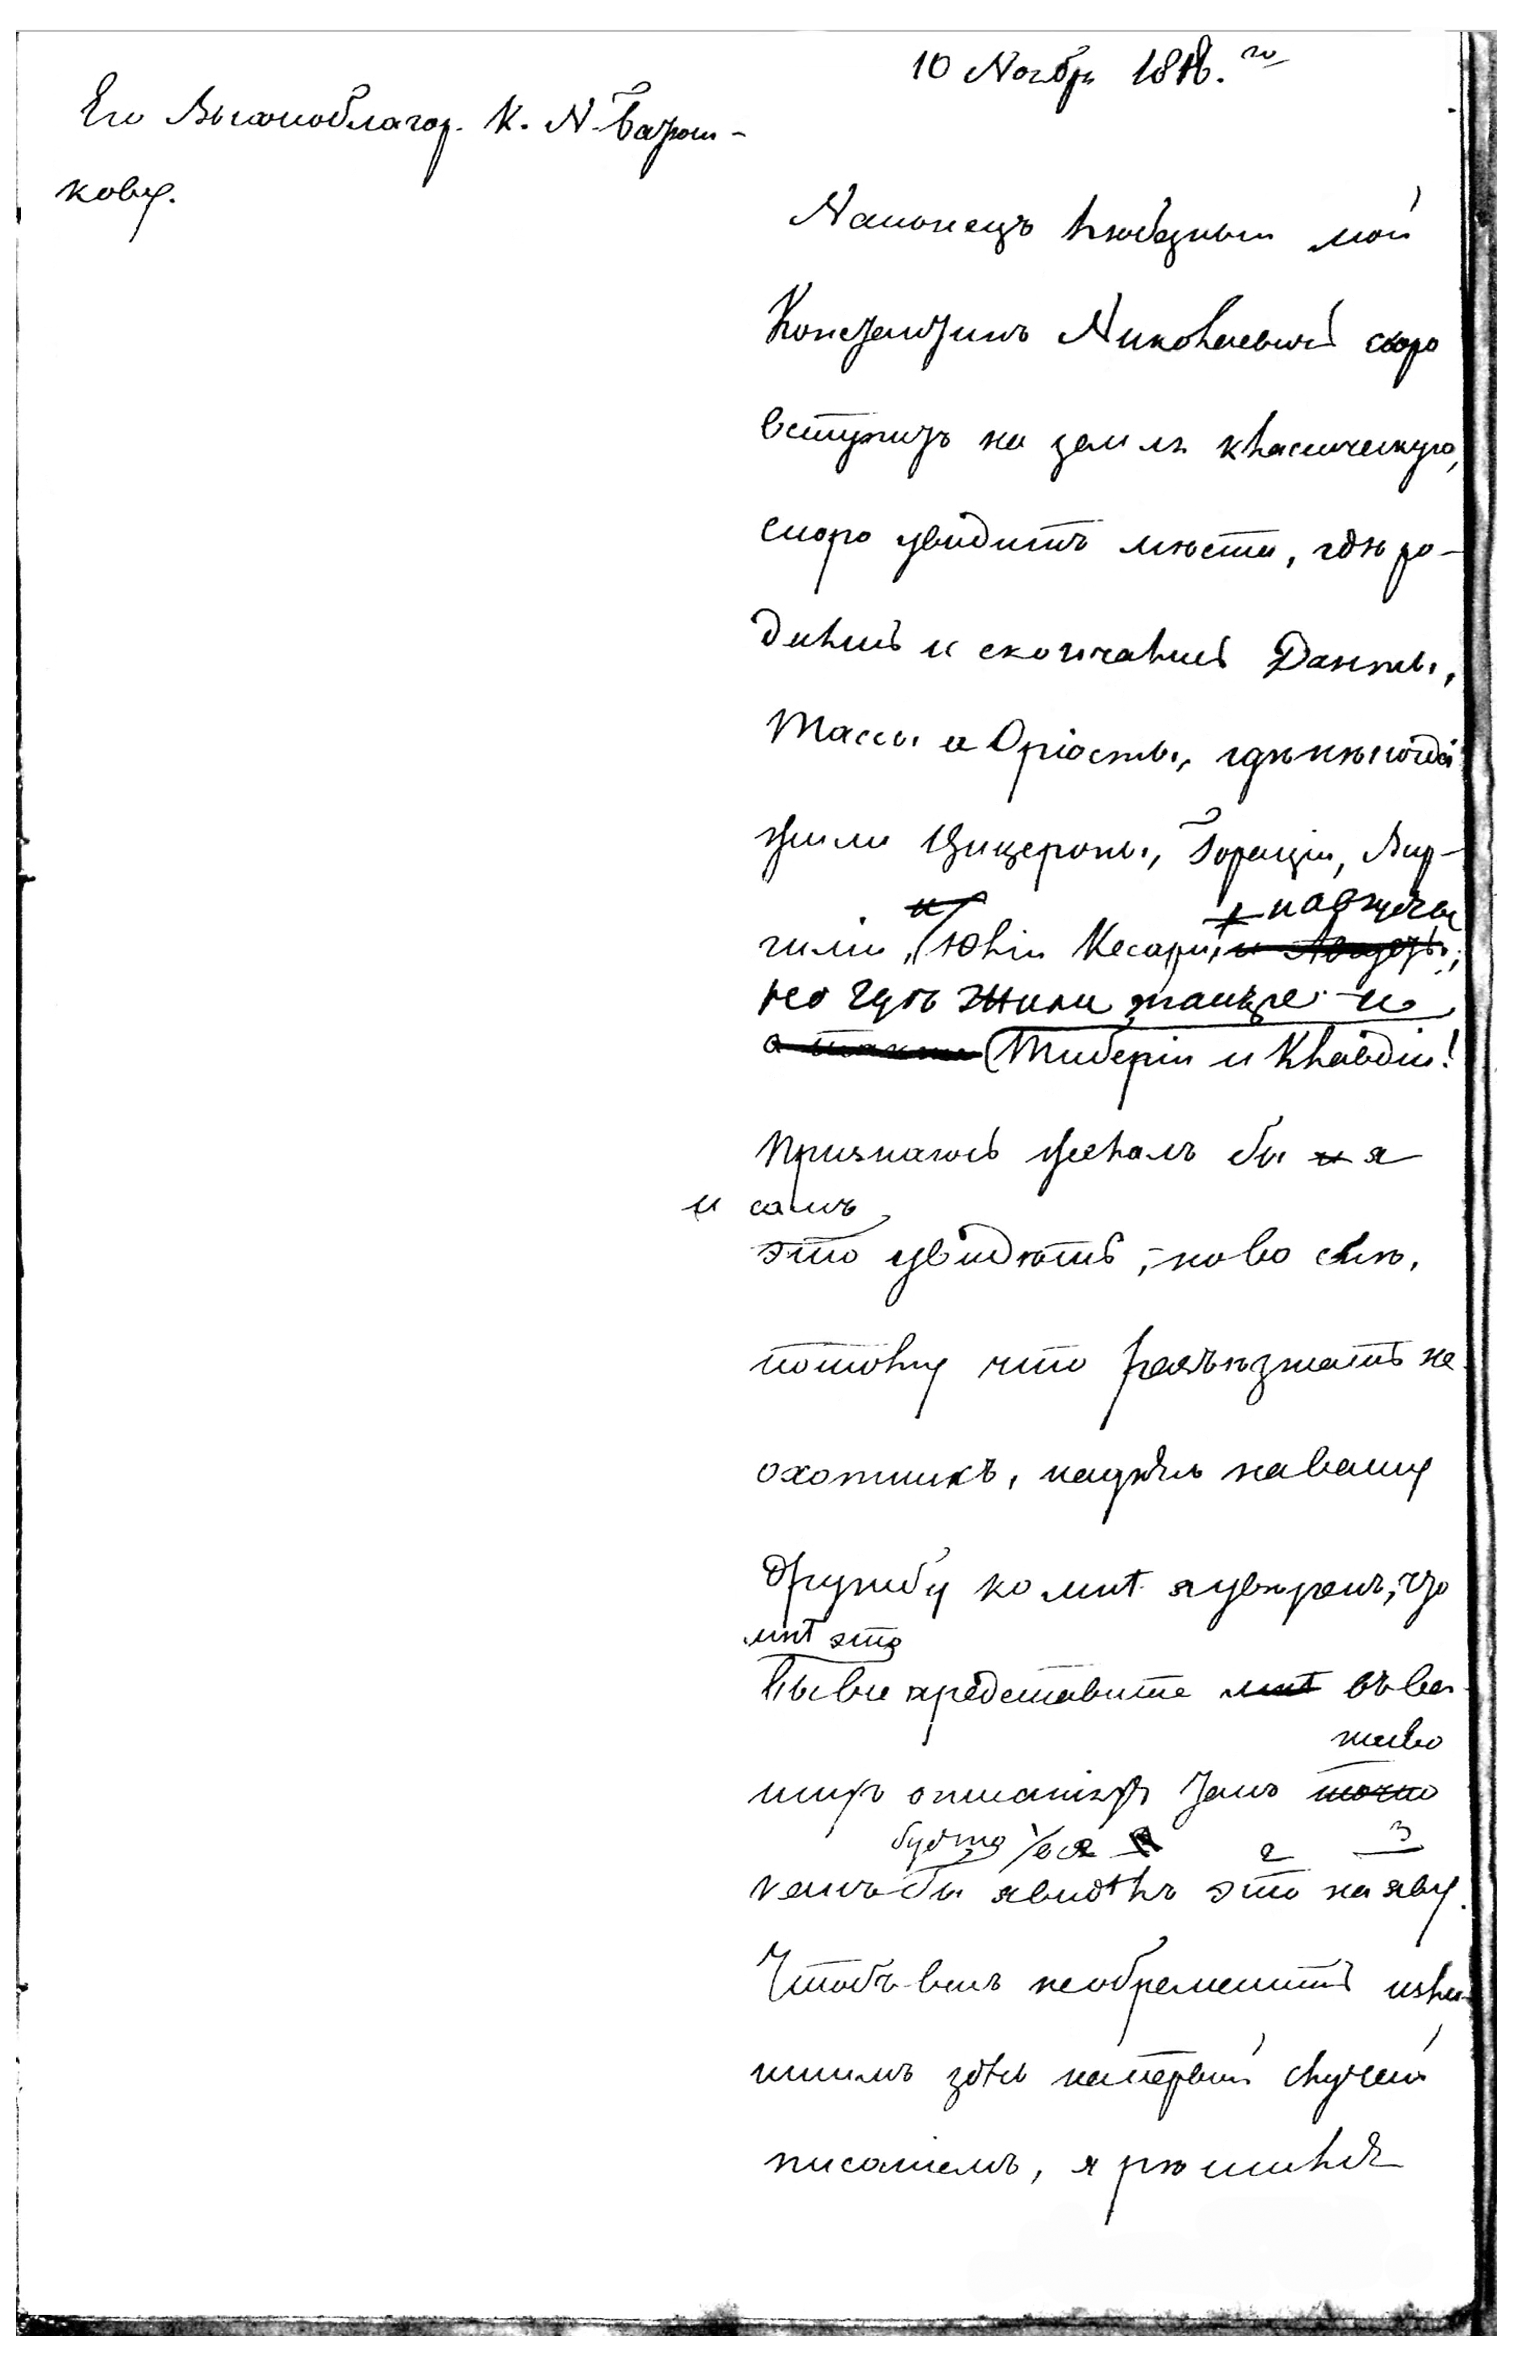 10 Ноября 1818.го
Его Высокоблагор. К. Н. Батюш-
кову.
Наконецъ любезный мой
Константинъ Николаевичь скоро
вступитъ на землю класическую,
скоро увидитъ мѣста, гдѣ ро-
дились и скончались Данты,
Тассы и Оріосты, гдѣ нѣкогда
жили Цицероны, Горации, Вир-
и Августы
гилiи, Юлiи Кесари, и Августы;
но гдѣ жили также и
а также Тиберiи и Клавдiи!
Признаюсь желалъ бы и я
и самъ
это увидѣть, но во снѣ,
потому что разъѣзжать не
охотникъ, надѣясь на вашу
дружбу ко мнѣ я увѣренъ, что
мнѣ это
вы все представите мнѣ въ ва-
живо
шихъ описанiяхъ такъ точно
будто 2 3
какъ бы я видѣлъ это на яву.
Чтобъ васъ не обременить изли-
шнимъ здѣсь на первый случай
писанiемъ, я рѣшился